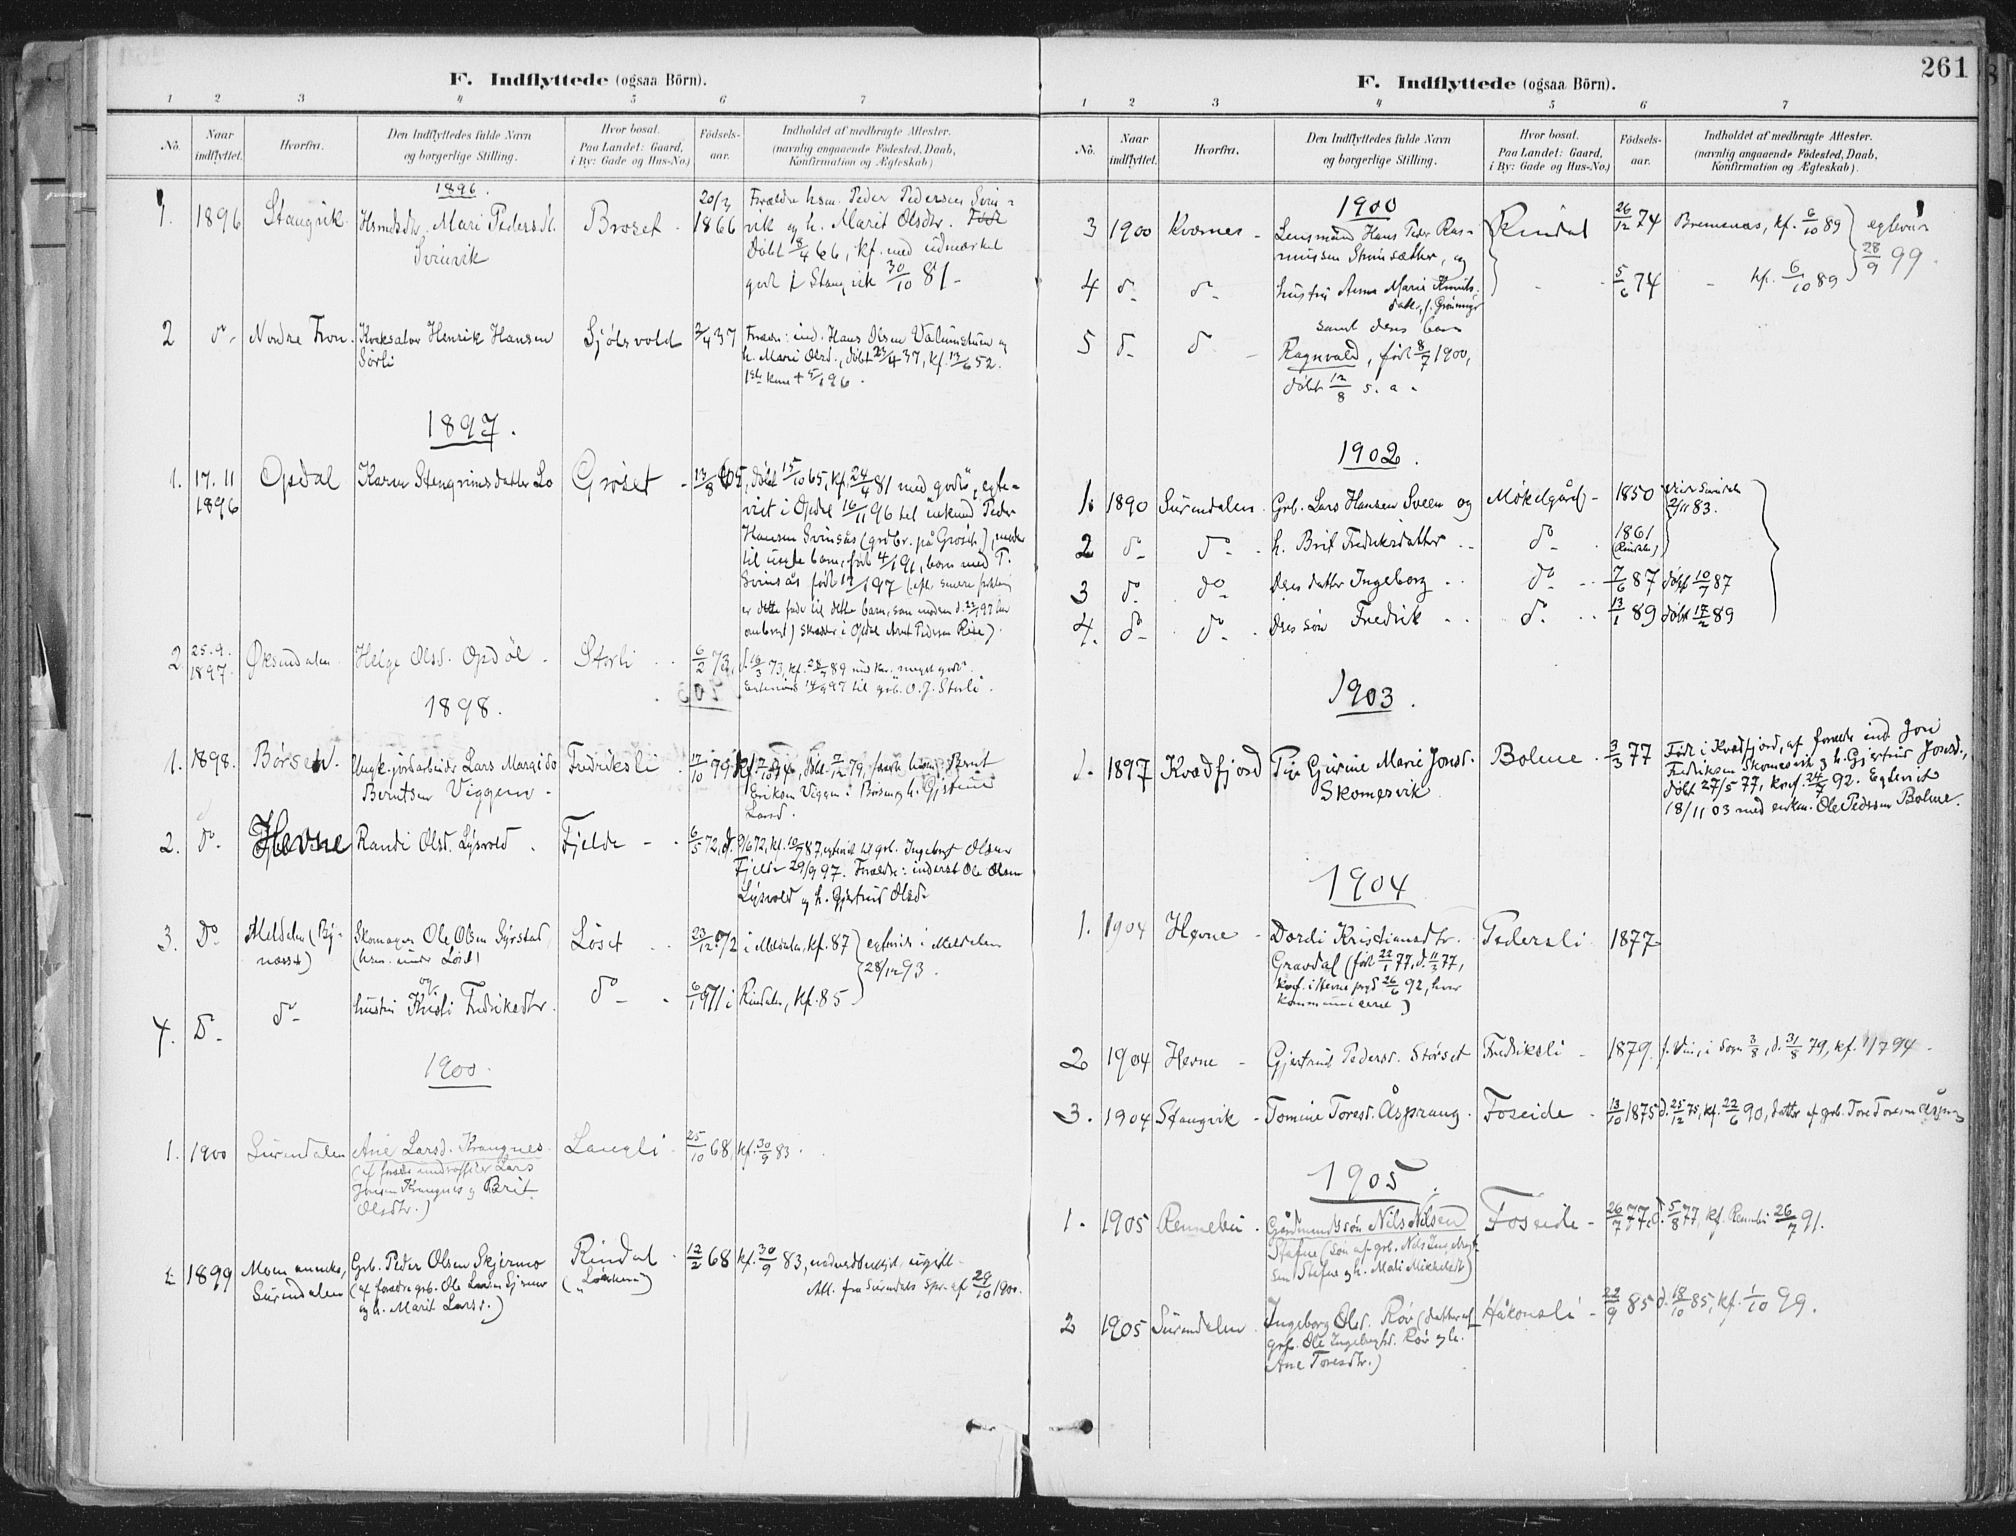 F. Indflyttede (ogsaa Börn).
1 2 3 4 5 6 7
No. Naar indflyttet. Hvorfra. Den Indflyttedes fulde Navn og borgerlige Stilling. Hvor bosat. Paa Landet: Gaard, i By: Gade og Hus-No.) Födsels-aar. Indholdet af medbragte Attester. (navnlig angaaende Födested, Daab, Konfirmation og Ægteskab).
1896.
1. 1896 Stangvik. Mari Pedersdt. Broset 20/3 1866 Forældre hsm. Peder Pedersen Svin-
Svinvik
vik og h. Marit Olsdtr. Født
døbt 18/4 66, kf. med udmærket
godt i Stangvik 30/10 81
2 do Nordre Fron. Henrik Hansen Sjølsvold 2/4 37 Forældr: ind. Hans Olsen og
Sørli
h. Mari Olsd., døbt 23/4 37, kf. 13/6 52.
1ste kone + 5/1 96.
1897.
1. 17.11 1896 Opdal Karen Stengrimsdatter Lo Grøset 13/8 65, døbt 15/10 65, kf. 24/4 81 med godt, egte-
viet i Opdal 16/11 96 til enkemd Peder
Hansen Svinsås (grdbr. på Grøset), moder
til uegte barn, født 4/1 91, barn med P.
Svinsås født 12/1 97
er dette fader til dette barn, som moderen
i Opdal Arnt Pedersen Rise).
2. 25.9. 1897. Øksendalen Helge Olsd. Opdøl Storli 6/2 73, d. 16/3 73, kf. 28/7 89 med kar. meget godt.
til grb. O. J. Storli.
1898.
1. 1898. Børsen. Ungk. jordarbeider Lars Margido Fredriksli 17/10 79. kf. 7/10 94, døbt 7/12 79, Bernt
Berntsen Viggen.
Eriksen Viggen i Børsen og h. Gjertine
Larsd.
2. do Hevne Randi Olsd. Lysvold Fjelde 6/5 72, d. 9/6 72, kf. 10/7 87, egteviet til grb. Ingebrigt Olsen
Fjelde 29/9 97. Forældre: inderst Ole Olsen
Lysvold og h. Gjertrud Olsd.
3. Do Meldalen (By-
næsset) Skomager Ole Olsen Syrstad, Løset 23/12 72 i Meldalen, kf. 87 egteviet i Meldalen
(hsm. under Løset)
28/12 93.
og
4. D. do hustru Kristi Fredriksdtr. do 6/1 71 i Rindalen, kf. 85
1900.
1. 1900 Surendalen Ane Larsd. Krangnes. Langli 25/10 68, kf. 30/9 83.
(af forældre underofficer Lars
Krangnes og Berit
Olsdtr.)
2 1899 Surendalen Grb. Peder Olsen Skjermo Rindal 12/2 68 kf. 30/9 83,
(af forældre grb. Ole Larsen Skjermo
og h. Marit Larsd.)
Att. fra Surendals Spr. af 29/10 1900.
F. Indflyttede (ogsaa Börn).
261
1 2 3 4 5 6 7
No. Naar indflyttet. Hvorfra. Den Indflyttedes fulde Navn og borgerlige Stilling. Hvor bosat. Paa Landet: Gaard, i By: Gade og Hus-No.) Födsels-aar. Indholdet af medbragte Attester. (navnlig angaaende Födested, Daab, Konfirmation og Ægteskab).
1900
3 1900 Kværnes Lensmand Hans Peder Ras- Rindal 26/12 74 Bremsnæs, kf. 6/10 89 egteviet
mussen og 28/9 99.
4 do do hustru Anna Marie Knuts- 5/6 74 kf. 6/10 89
datter,
samt deres barn
5 do do Ragnvald, født 8/7 1900,
døbt 12/8 s. a.
1902.
1. 1890 Surendalen Grb. Lars Hansen Sveen og Møkelgård 1850 2/11 83.
2 do do h. Brit Fredriksdatter do 1861 (Rindalen)
3 do do Deres datter Ingeborg do 7/6 87 døbt 10/7 87
4. do do Deres søn Fredrik do 13/1 89 døbt 17/2 89
1903.
1. 1897 Kvædfjord Pige Gjurine Marie Jonsd. Bolme 3/3 77 Født i Kvædfjord, af forældre ind. Jon
Skomesvik
Fredriksen Skomesvik og h. Gjertrud Jonsd.,
døbt 27/5 77, konf. 24/7 92. Egteviet
18/11 03 med enkem. Ole Pedersen Bolme.
1904
1. 1904 Hevne Dordi Kristiansdtr. Pedersli 1877
Gravdal (født 22/1 77, d. 11/3 77,
konf. i Hevne 26/6 92, hvor
kommunicerer)
2 1904 Hevne Gjertrud Pedersd. Størset Fredriksli 1879. 3/8, d. 31/8 79, kf. 1/7 94.
3. 1904 Stangvik Tomine Toresd. Åsprang. Foseide 13/10 1875 d. 25/12 75, kf. 22/6 90, datter af grb. Tore Toresen
1905.
1. 1905 Rennebu Gårdmandssøn Nils Nilsen Foseide 26/7 77, d. 5/8 77, kf. Rennebu 26/7 91.
Stafne (søn af grb. Nils Ingebrigt-
sen Stafne og h. Mali Mikkelsdt)
2 1905 Surendalen Ingeborg Olsd. Røv (datter af Håkonsli 22/9 85 d. 18/10 85, kf. 1/10 99.
grb. Ole Røv og h.
Ane Toresdtr.)